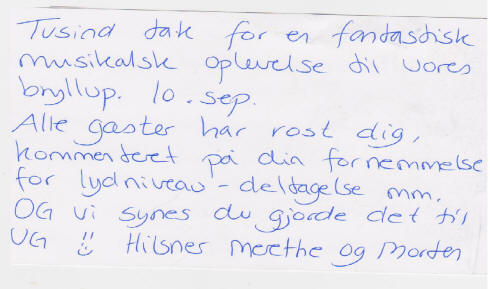 Tusind tak for en fantastisk
musikalsk oplevelse til vores
bryllup. 10. sep.
Alle gæster har rost dig,
kommenteret på din fornemmelse
for lydniveau - deltagelse mm.
OG vi synes du gjorde det til
UG !! Hilsner Merethe og Morten